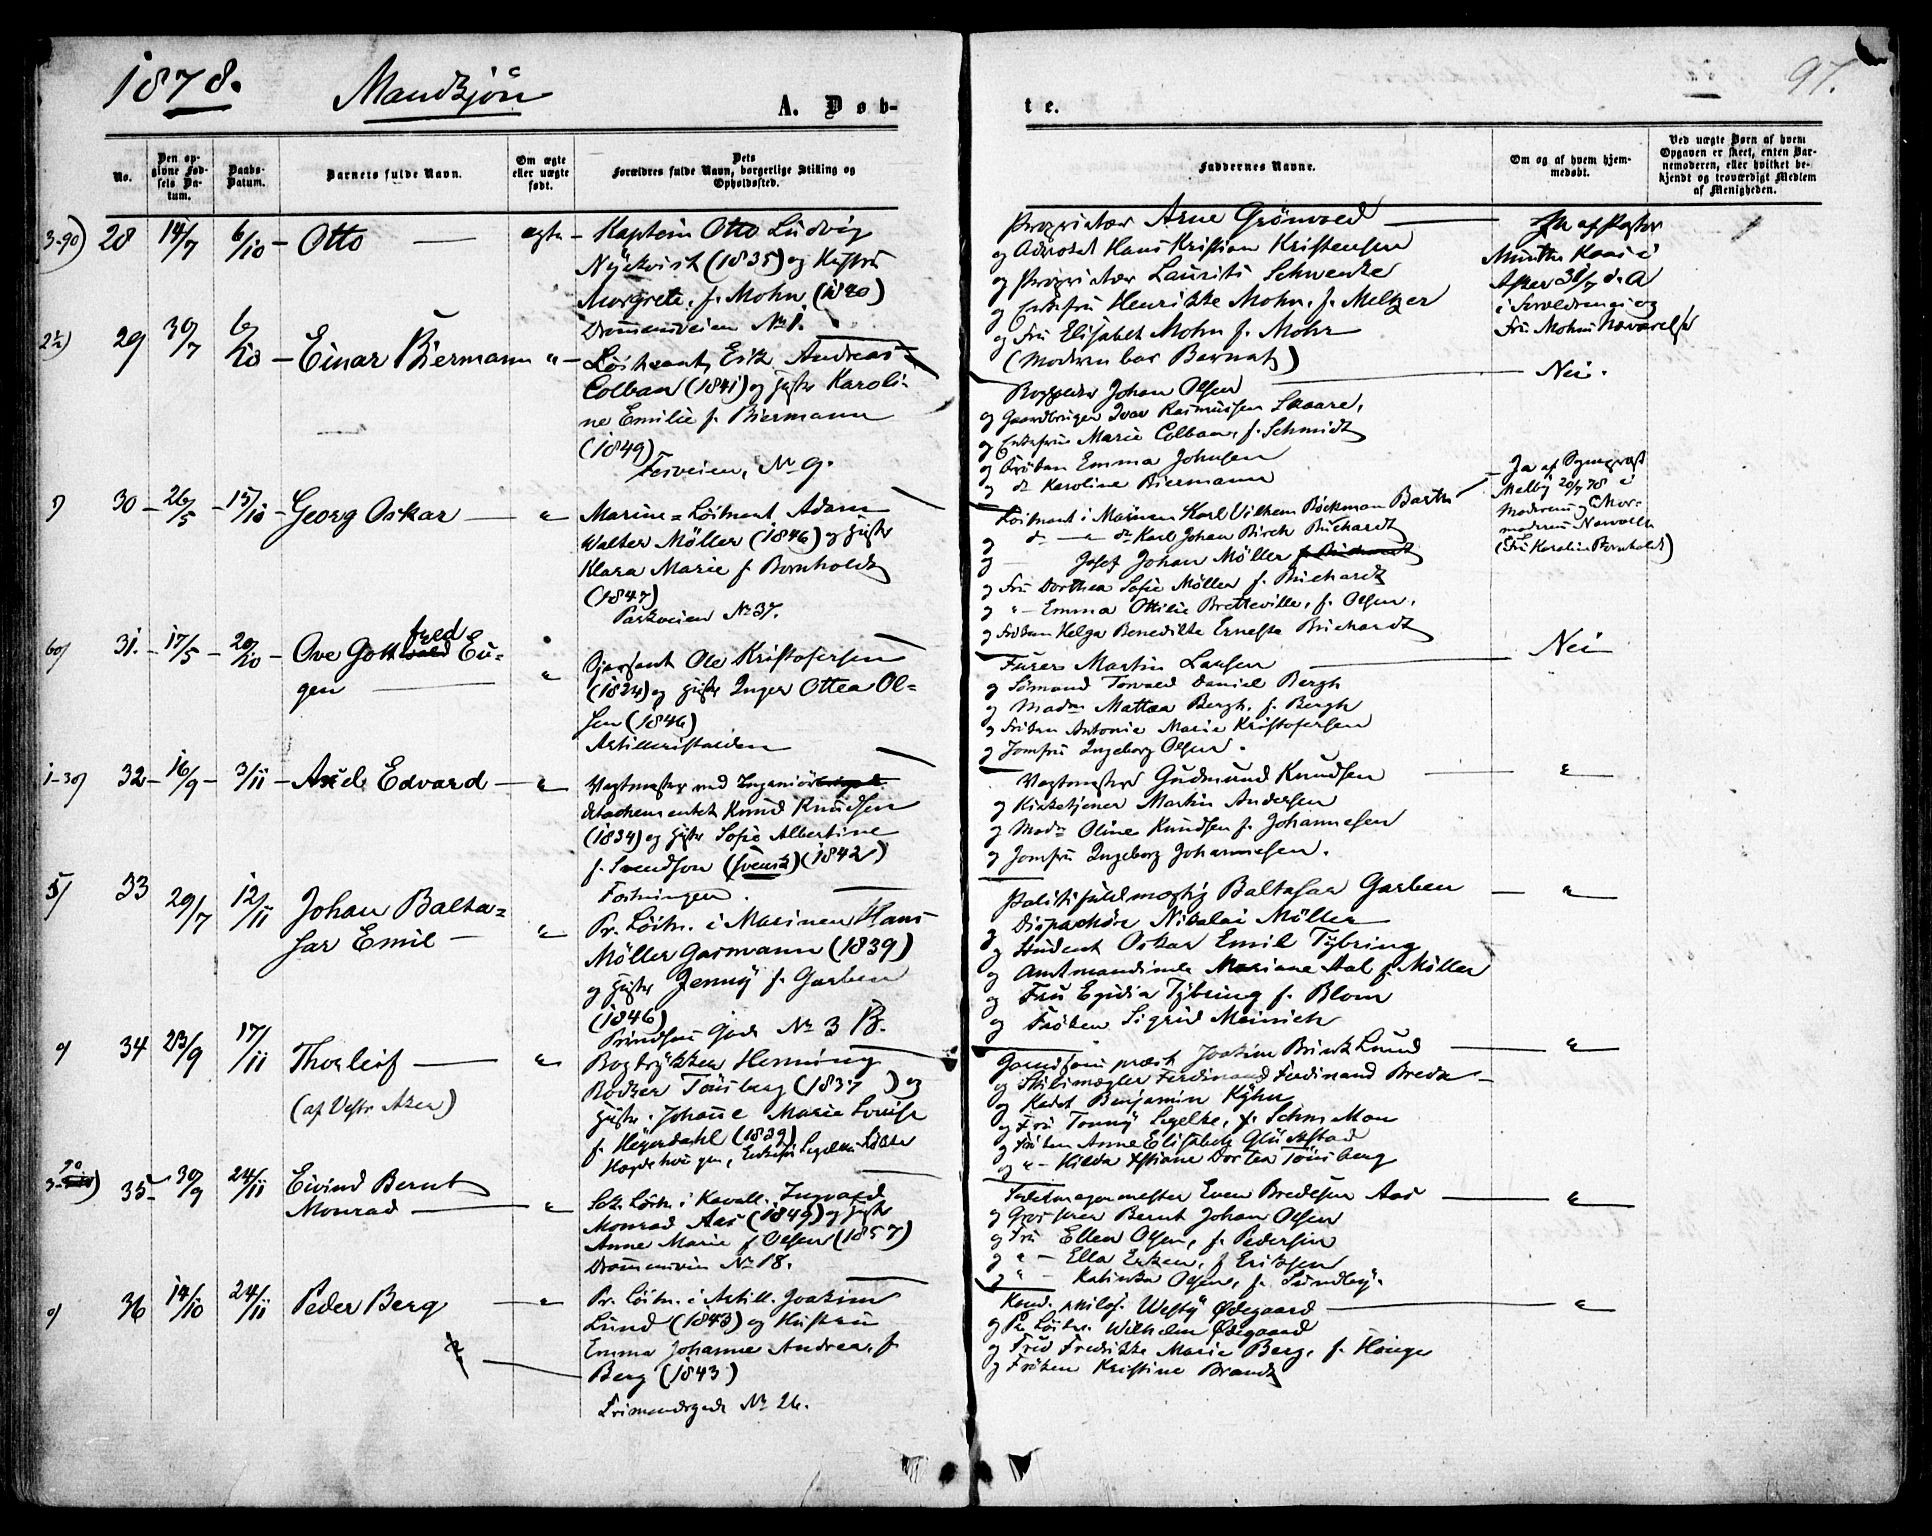 1878.
Mandkjön
97.
A. Døb-
te.
No.
Den op-
givne Fød-
sels Da-
tum.
Daabs-
Datum.
Barnets fulde Navn.
Om ægte
eller uægte
født.
Dets
Forældres fulde Navn, borgerlige Stilling og
Opholdssted.
Faddernes Navne.
Om og af hvem hjem-
medøbt.
Ved uægte Børn af hvem
Opgaven er skeet, enten Bar-
nemoderen, eller hvilket be-
kjendt og troværdigt Medlem
af Menigheden.
3-90) 28 14/7 6/10 - Otto — ægte - Kaptein Otto Ludvig
Nÿkvist (1835) og Hustru
Margrete, f. Mohn (1840)
Drammensveien No 1.
Proprietær Arne Grönvold —
og Advokat Hans Kristian Kristensen
og Proprietær Laurits Schwenke
og Enkefru Henrikke Mohn, f. Meltzer
og Fru Elisabet Mohn f. Mohr
(Moderen bar Barnet)
Ja af Pastor
Munthe Kaas i
Asker 31/7 d. A
i Forældrenes og
Fru Mohns Nærværelse
29 30/7 6/10 - Einar Biermann " - Löitnant Erik Andreas
Colban (1841) og Hustr Karoli-
ne Emilie f. Biermann
(1849)
No 9.
Johan Olsen
og Gaardbruger Ivar Rasmussen Skaare,
og Enkefru Marie Colban, f. Schmidt
og Fröken Emma Johnsen
og do Karoline Biermann
Nei.
30 - 26/5 - 15/10 - Georg Oskar — " - Marine-Löitnant Adam
Walter Möller (1846) og Hustr
Klara Marie f. Bornholdt
(1847)
Parkveien No 37.
Löitnant i Marinen Karl Vilhelm Böckman Barth
og do — " do Karl Johan Birch Büchardt
og — Josef Johan Möller
og Fru Dorthea Sofie Möller f. Büchardt
og " - Emma Ottilie Bretteville, f. Olsen,
og Fröken Helga Benedikte Ernesta Büchardt
Ja af
Melby 20/7 78 i
Moderens og Mor-
moderens Nærværelse
(Fru Karoline Bornholdt)
60) 31. - 17/5 - 20/10 - Ove Gottfred Eu-
gen — " Sjersant Ole Kristofersen
(1824) og Hustr Inger Ottea Ol-
sen (1846)
Furer Martin Larsen
og Sömand Torvald Daniel Bergh
og Madm Mattea Bergh, f. Bergh
og Fröken Antonie Marie Kristofersen
og Jomfru Ingeborg Olsen.
Nei
1-30) 32 - 16/9 - 3/11 - Axel Edvard — " - Vagtmester ved Ingeniör
detachementet Knud Knudsen
(1834) og Hustr Sofie Albertine
f. Svendson (svensk) (1842)
Fæstningen.
Vagtmester Gudmund Knudsen — "
og Kirketjener Martin Andersen
og Madm Oline Knudsen f. Johannesen
og Jomfru Ingeborg Johannesen.
5) 33 29/7 12/11 Johan Balta-
sar Emil — " Pr. Löitn. i Marinen Hans
Möller Gasmann (1839)
og Hustr Jenny f. Garben
(1846)
No 3 B.
Politifuldmægtig Baltasar Garben — "
og Dispachör Nikolai Möller
og Student Oskar Emil Tybring
og Amtmandinde Mariane Aal f. Möller
og Fru Egidia Tybring f. Blom
og Fröken Sigrid Meinich
0) 34 23/9 17/11 Thorleif — " Bogtrykker Henning
Bödker Tönsberg (1837) og
Hustr. Johanne Marie Lovise
f. Heyerdahl (1839)
(af Vestr Aker)
Joakim Brink Lund — "
og Skibsmægler Ferdinand Ferdinand Breda
og Kadet Benjamin Kyhn
og Fru Tonny Segelke, f.
og Fröken Anne Elisabeth Glückstad
og " - Hilda Kstiane Dortea Tönsberg
90
35 - 30/9 24/11 Eivind Bernt
Monrad — " Sek. Löitn. i Kavall. Ingvard
Monrad Aas (1849) og Hustr
Anne Marie f. Olsen (1857)
Drammensveien No 18.
Even Bredesen Aas — "
og Grosserer Bernt Johan Olsen
og Fru Ellen Olsen, f. Pedersen
og " - Ella f. Eriksen
og " - Katinka Olsen, f. Sundby.
0) 36 14/10 24/11 Peder Berg — " Pr. Löitn. i Artill. Joakim
Lund (1843) og Hustru
Emma Johanne Andrea, f.
Berg (1843)
No 26.
Kand. philos. Westy Ødegaard — "
og Pr. Löitn. Wilhelm Ødegaard
og Fru Fredrikke Marie Berg, f. Hauge
og Fröken Kristine Brandt